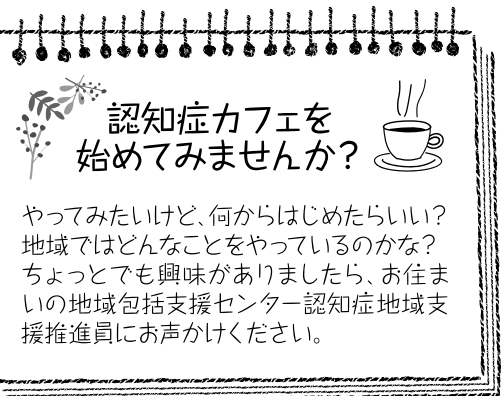 認知症カフェを
始めてみませんか？
やってみたいけど、何からはじめたらいい？
地域ではどんなことをやっているのかな？
ちょっとでも興味がありましたら、お住ま
いの地域包括支援センター認知症地域支
援推進員にお声かけください。